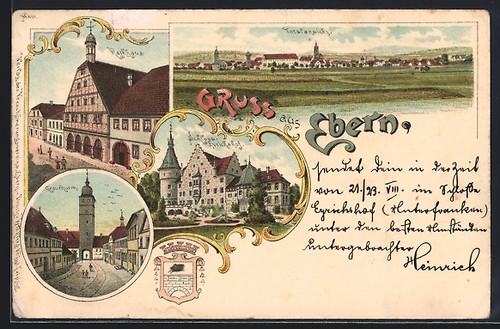 Rathhaus
Totalansicht
Gruss
aus
Ebern,
Schloss
Eyrichshof
Grauthurm
sendet dein in der Zeit
vom 21.-23. VIII. im Schloße
Eyrichshof (Unterfranken)
unter den besten Umständen
untergebrachter
Heinrich